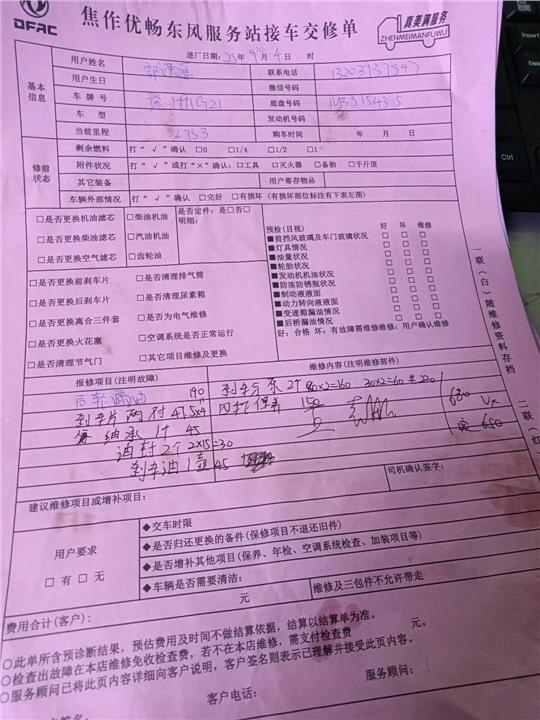 DFAC
焦作优畅东风服务站接车交修单
真美满服务
ZHENMEIMANFUWU
进厂日期: 25年 9月 4日 时
基本信息
用户姓名 联系电话
用户生日 微信号码
车 牌 号 底盘号码
车 型 发动机号码
当前里程 6753 购车时间 年 月 日
修前状态
剩余燃料 打“ √ ”确认 □0 □1/4 □1/2 □1
附件状况 打“ √ ”或打“×”确认: □工具 □灭火器 □备胎 □千斤顶
其它装备 用户寄存物品
车辆外部情况 打“ √ ”确认 □完好 □有损坏 (有损坏部位标注有下表左图)
□是否更换机油滤芯 □柴油机油
□是否更换柴油滤芯 □汽油机油
□是否更换空气滤芯 □齿轮油
是否定件: □是□否□
明细:
□是否更换前刹车片 □是否清理排气筒
□是否更换后刹车片 □是否清理尿素箱
□是否更换离合三件套 □是否为电气维修
□是否更换火花塞 □空调系统是否正常运行
□是否清理节气门 □其它项目维修及更换
预检(目视) 好 坏 维修
■前挡风玻璃及车门玻璃状况 □ □ □
■灯具情况 □ □ □
■油量状况 □ □ □
■轮胎状况 □ □ □
■发动机机油状况 □ □ □
■防冻防锈瓶状况 □ □ □
■制动液液面 □ □ □
■动力转向液液面 □ □ □
■变速箱漏油情况 □ □ □
■后桥漏油情况 □ □ □
好: 合格 坏: 有故障需维修维修: 用户确认维修
一联(白)随维修资料存档
二联(红)
报修项目(注明故障) 维修内容(注明维修部件)
后轮漏油 190 刹车分泵2个 80×2=160 30×2=60
刹车片两付 47.5×4 150
轴承1个 45 680
油封2个 2×15=30 650
刹车油1壶 45
司机确认签字:
建议维修项目或增补项目:
用户要求
□ 有 □ 无
◆交车时限
◆是否归还更换的备件(保修项目不退还旧件)
◆是否增补其他项目(保养、年检、空调系统检查、加装项目等)
◆车辆是否需要清洁:
元 维修及三包件不允许带走
费用合计(客户):
○此单所含预诊断结果, 预估费用及时间不做结算依据, 结算以结算单为准。
○检查出故障在本店维修免收检查费, 若不在本店维修, 需支付检查费 元。
○服务顾问已将此页内容详细向客户说明, 客户签名则表示已理解并接受此页内容。
服务顾问:
客户电话:
Ctrl